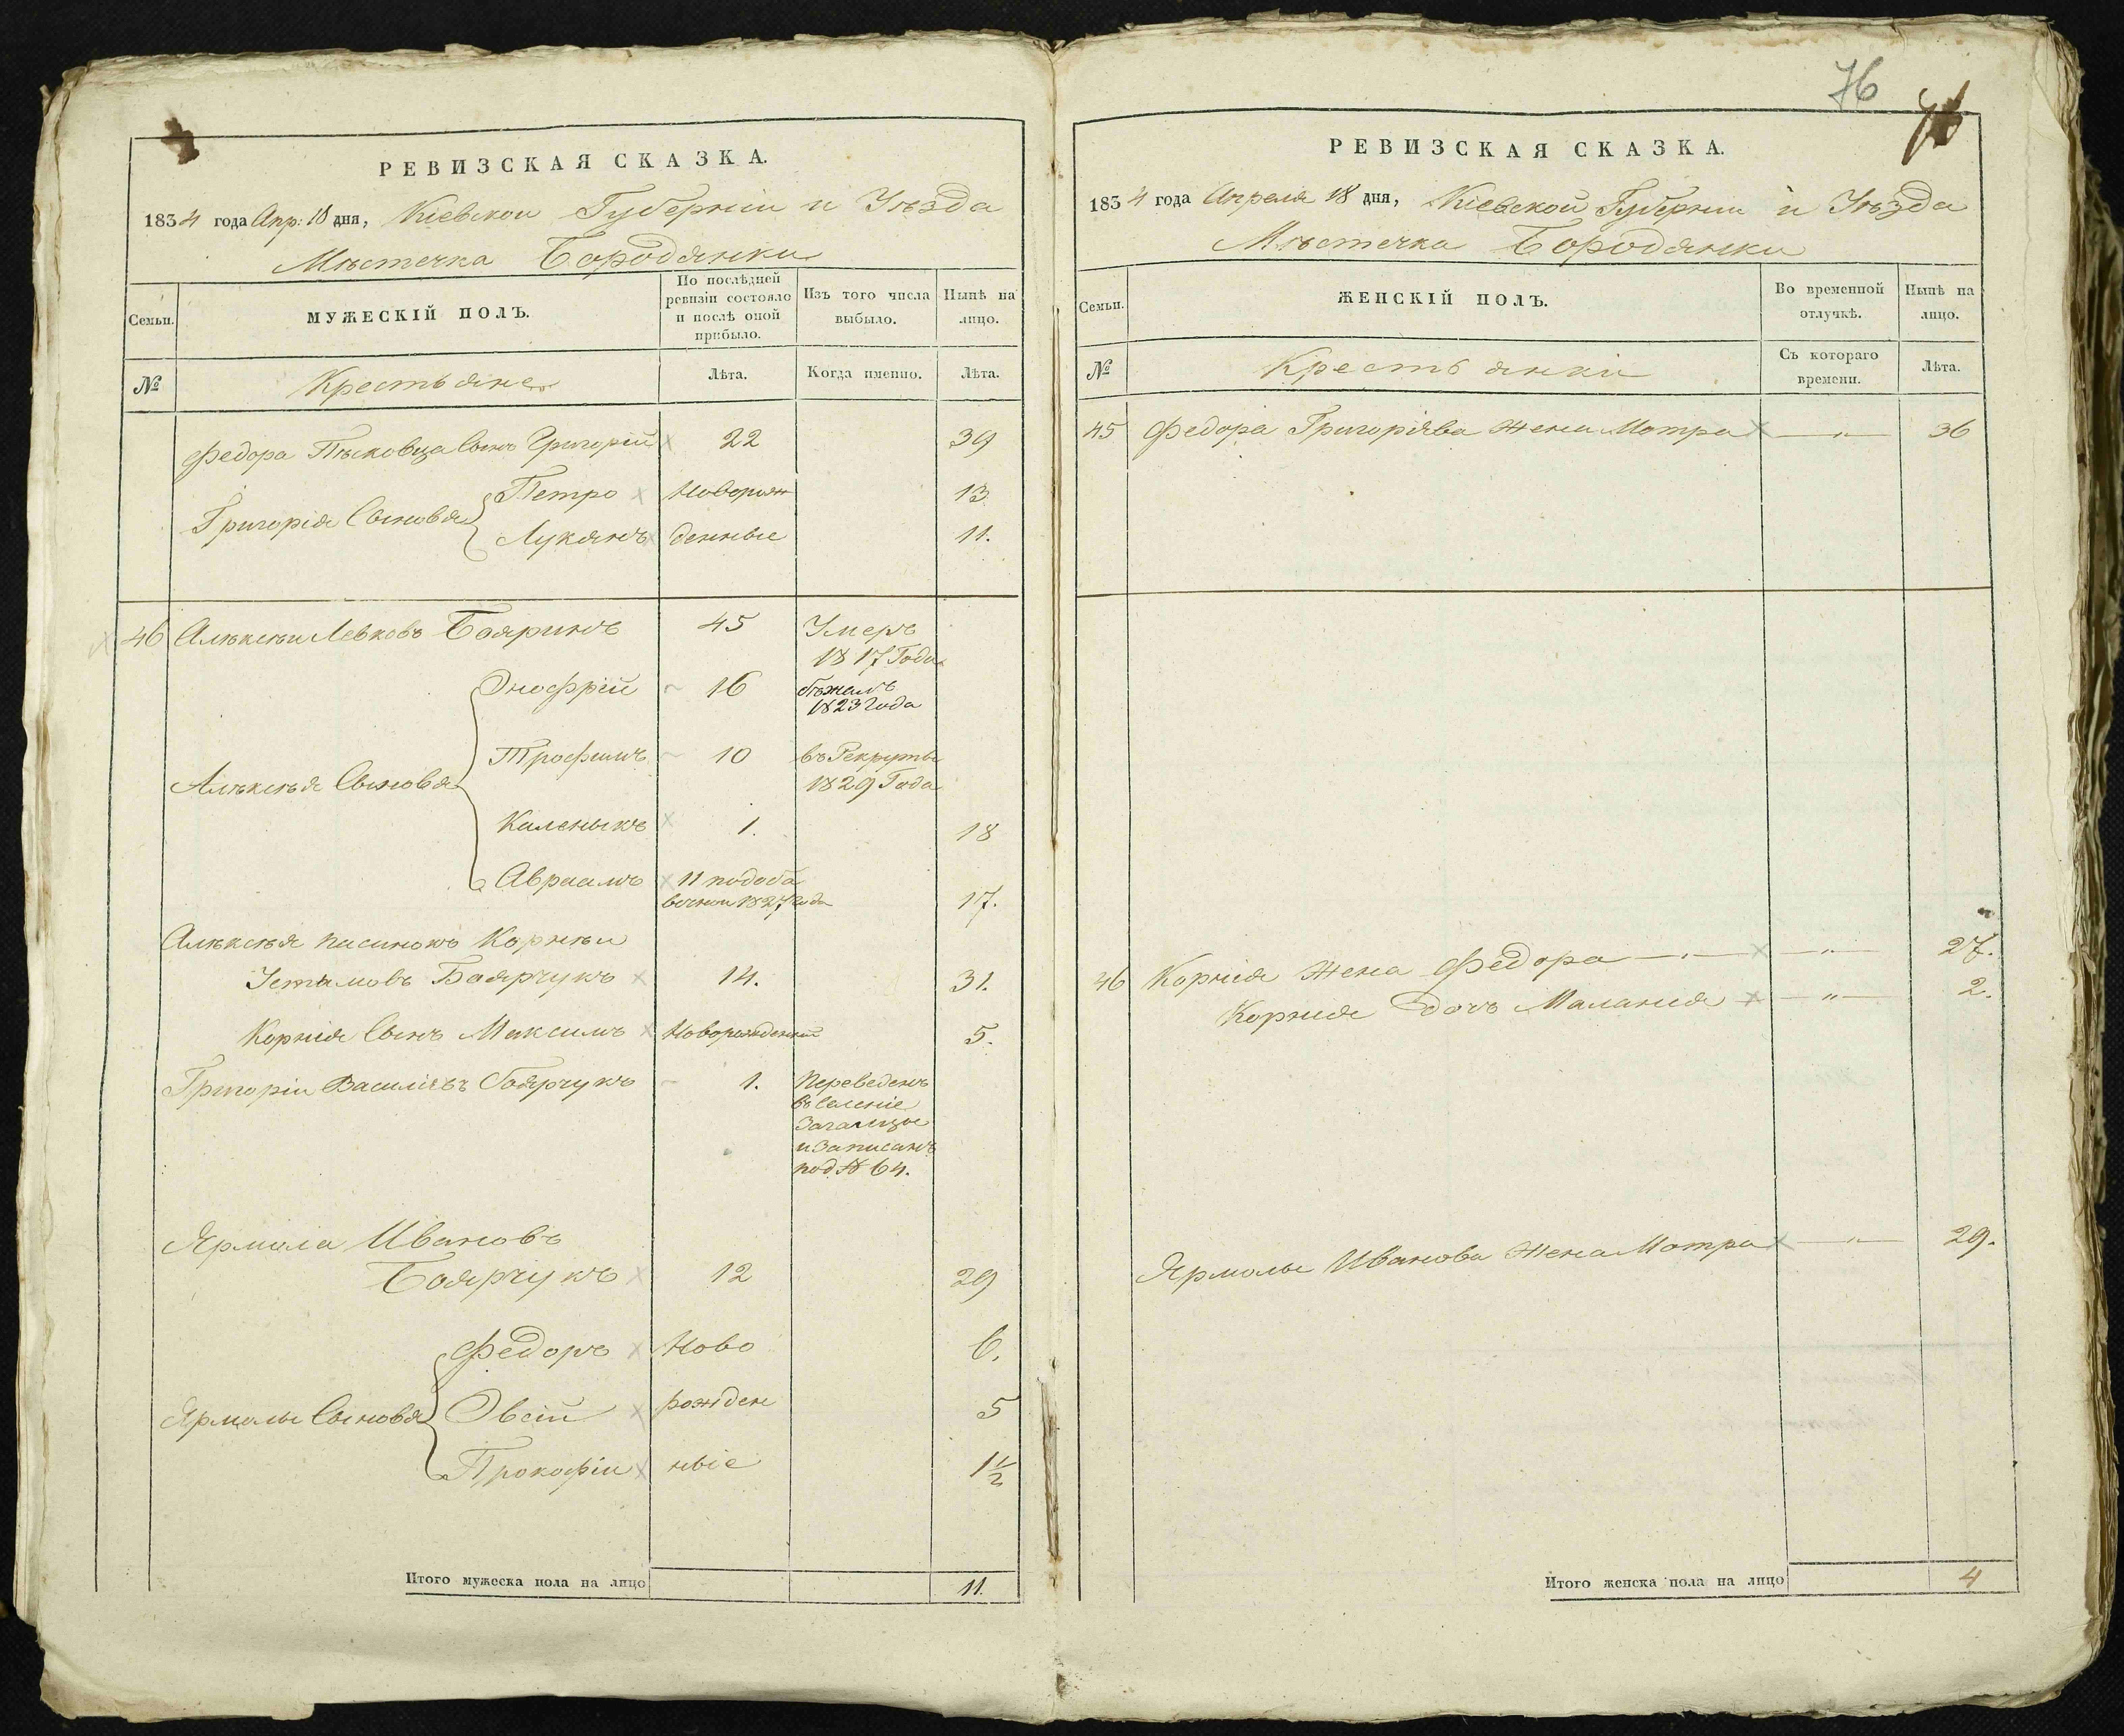 РЕВИЗСКАЯ СКАЗКА.
1834 года Апр: 18 дня, Кіевской Губерніи и Уѣзда
Мѣстечка Бородянки
Семьи.
МУЖЕСКІЙ ПОЛЪ.
По послѣдней
ревизіи состояло
и послѣ оной
прибыло.
Изъ того числа
выбыло.
Нынѣ на
лицо.
№
Крестьяне
Лѣта.
Когда именно.
Лѣта.
Федора Пѣсковца Сынъ Григорій 22 39
Григорія Сыновья
Петро Новорож 13
Лукянъ денные 11.
46 Алѣксѣи Левковъ Бояринъ 45 Умеръ
1817 Года
Онофрій 16 бѣжалъ
1823 Года
Трофимъ 10 въ Рекруты
1829 Года
Алѣксѣя Сыновья
Каленыкъ 1. 18
Авраамъ 11 по
1827 Года 17.
Алѣксѣя пасинокъ Корнѣи
Боярчукъ 14. 31.
Корнія Сынъ Максимъ Новорожденный 5.
Григоріи Василіевъ Боярчукъ 1. Переведенъ
въ Селеніе
Загальцы
и Записанъ
под № 64.
Ярмола Ивановъ
Боярчукъ 12 29
Федоръ Ново 6.
Ярмолы Сыновья Овсій рожден 5
Прокофіи ныіе 1½
Итого мужеска пола на лицо 11.
76
РЕВИЗСКАЯ СКАЗКА.
1834 года Апреля 18 дня, Кіевской Губерніи и Уѣзда
Мѣстечка Бородянки
Семьи.
ЖЕНСКІЙ ПОЛЪ.
Во временной
отлучкѣ.
Нынѣ на
лицо.
№
Крестьянки
Съ котораго
времени.
Лѣта.
45 Федора Григоріява Жена Мотра — " — 36
46 Корнія Жена Федора — " — — " — 27.
Корнія дочь Маланія — " — 2.
Ярмолы Иванова Жена Мотра — " — 29.
Итого женска пола на лицо 4